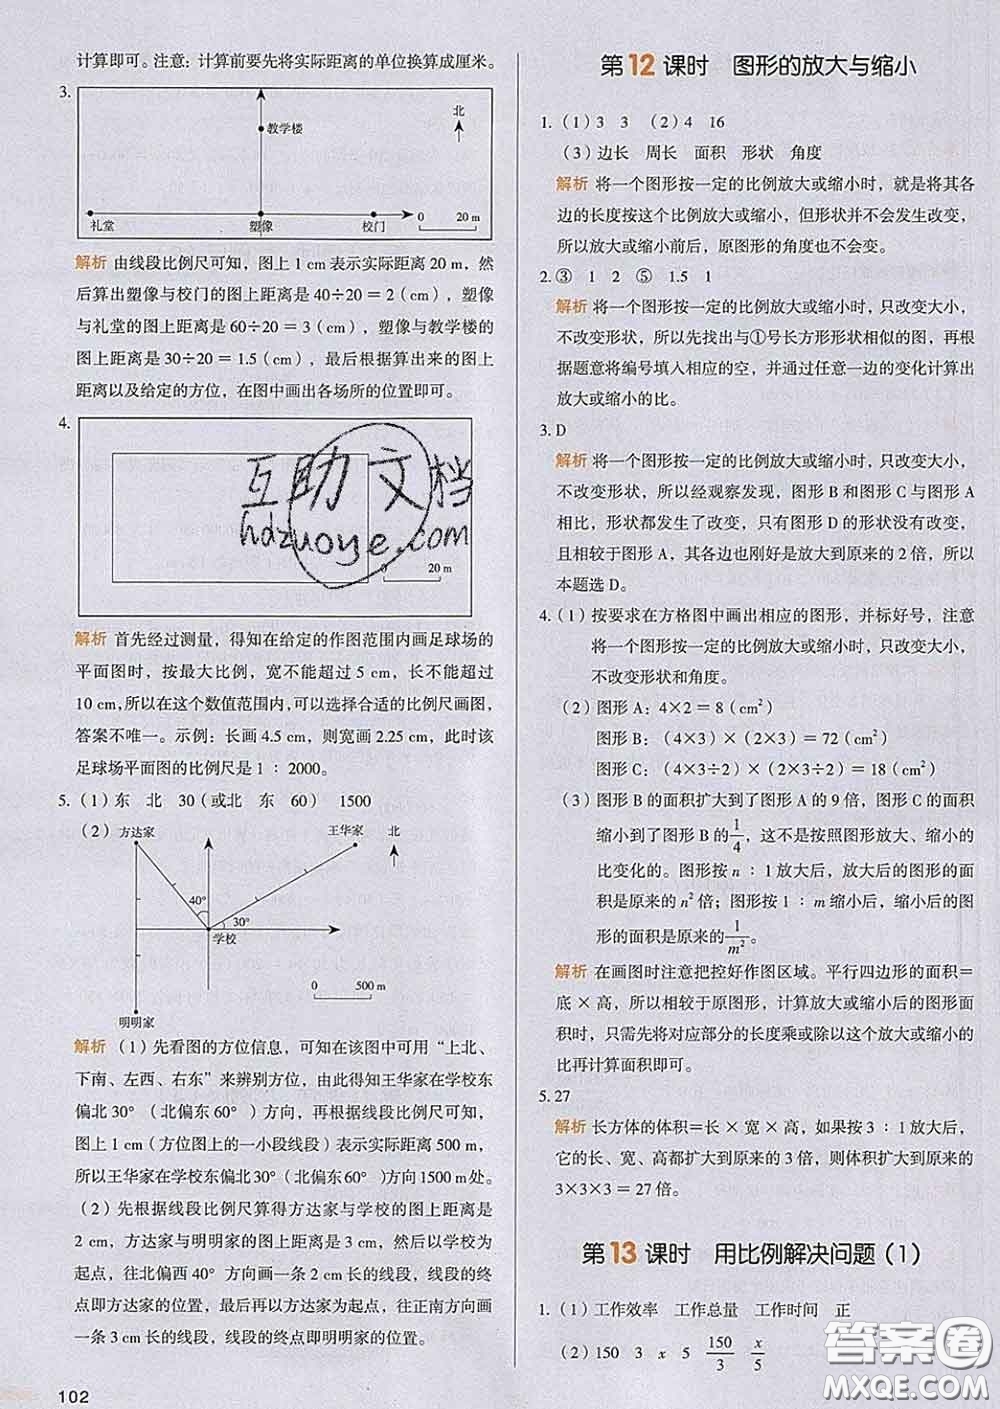 计算即可。注意：计算前要先将实际距离的单位换算成厘米。
3.
北
教学楼
礼堂 塑像 校门 0 20 m
解析 由线段比例尺可知，图上 1 cm 表示实际距离 20 m，然
后算出塑像与校门的图上距离是 40÷20＝2（cm），塑像
与礼堂的图上距离是 60÷20＝3（cm），塑像与教学楼的
图上距离是 30÷20＝1.5（cm），最后根据算出来的图上
距离以及给定的方位，在图中画出各场所的位置即可。
4.
互助文档
hdzuoye.com
0 20 m
解析 首先经过测量，得知在给定的作图范围内画足球场的
平面图时，按最大比例，宽不能超过 5 cm，长不能超过
10 cm，所以在这个数值范围内，可以选择合适的比例尺画图，
答案不唯一。示例：长画 4.5 cm，则宽画 2.25 cm，此时该
足球场平面图的比例尺是 1∶2000。
5.（1）东 北 30（或北 东 60） 1500
（2）
方达家
王华家 北
40°
30°
学校
0 500 m
明明家
解析 （1）先看图的方位信息，可知在该图中可用“上北、
下南、左西、右东”来辨别方位，由此得知王华家在学校东
偏北 30°（北偏东 60°）方向，再根据线段比例尺可知，
图上 1 cm（方位图上的一小段线段）表示实际距离 500 m，
所以王华家在学校东偏北 30°（北偏东 60°）1500 m 处。
（2）先根据线段比例尺算得方达家与学校的图上距离是
2 cm，方达家与明明家的图上距离是 3 cm，然后以学校为
起点，往北偏西 40° 方向画一条 2 cm 长的线段，线段的终
点即方达家的位置，最后再以方达家为起点，往正南方向画
一条 3 cm 长的线段，线段的终点即明明家的位置。
102
第12课时 图形的放大与缩小
1.（1）3 3 （2）4 16
（3）边长 周长 面积 形状 角度
解析 将一个图形按一定的比例放大或缩小时，就是将其各
边的长度按这个比例放大或缩小，但形状并不会发生改变，
所以放大或缩小前后，原图形的角度也不会变。
2.③ 1 2 ⑤ 1.5 1
解析 将一个图形按一定的比例放大或缩小时，只改变大小，
不改变形状，所以先找出与①号长方形形状相似的图，再根
据题意将编号填入相应的空，并通过任意一边的变化计算出
放大或缩小的比。
3. D
解析 将一个图形按一定的比例放大或缩小时，只改变大小，
不改变形状，所以经观察发现，图形 B 和图形 C 与图形 A
相比，形状都发生了改变，只有图形 D 的形状没有改变，
且相较于图形 A，其各边也刚好是放大到原来的 2 倍，所以
本题选 D。
4.（1）按要求在方格图中画出相应的图形，并标好号，注意
将一个图形按一定的比例放大或缩小时，只改变大小，
不改变形状和角度。
（2）图形 A：4×2＝8（cm²）
图形 B：（4×3）×（2×3）＝72（cm²）
图形 C：（4×3÷2）×（2×3÷2）＝18（cm²）
（3）图形 B 的面积扩大到了图形 A 的 9 倍，图形 C 的面积
缩小到了图形 B 的 1/4，这不是按照图形放大、缩小的
比变化的。图形按 n∶1 放大后，放大后的图形的面
积是原来的 n² 倍；图形按 1∶m 缩小后，缩小后的图
形的面积是原来的 1/m²。
解析 在画图时注意把控好作图区域。平行四边形的面积＝
底×高，所以相较于原图形，计算放大或缩小后的图形面
积时，只需先将对应部分的长度乘或除以这个放大或缩小的
比再计算面积即可。
5. 27
解析 长方体的体积＝长×宽×高，如果按 3∶1 放大后，
它的长、宽、高都扩大到原来的 3 倍，则体积扩大到原来的
3×3×3＝27 倍。
第13课时 用比例解决问题（1）
1.（1）工作效率 工作总量 工作时间 正
（2）150 3 x 5 150/3 x/5
答案圈
MXQE.COM